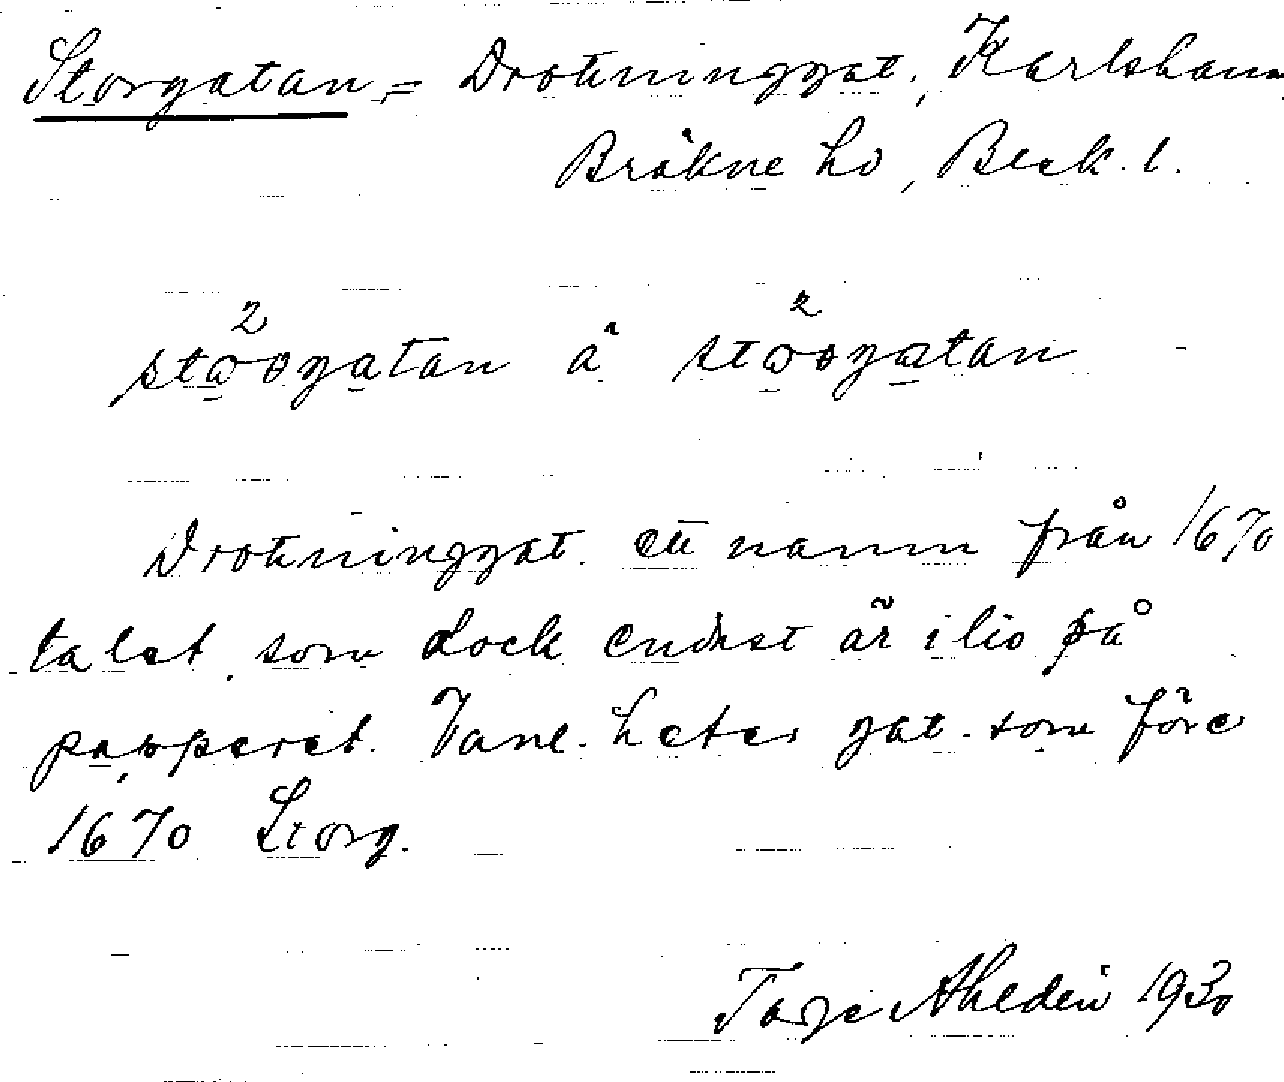 Storgatan = Drottninggat., Karlshamn
Bräkne hd, Blek. l.
2 2
stωογatan å stωογatan
Drottninggat. ett namn från 1670
talet, som dock endast är i liv på
papperet. Vanl. heter gat. som före
1670 Storg.
Tage Ahldén 1930